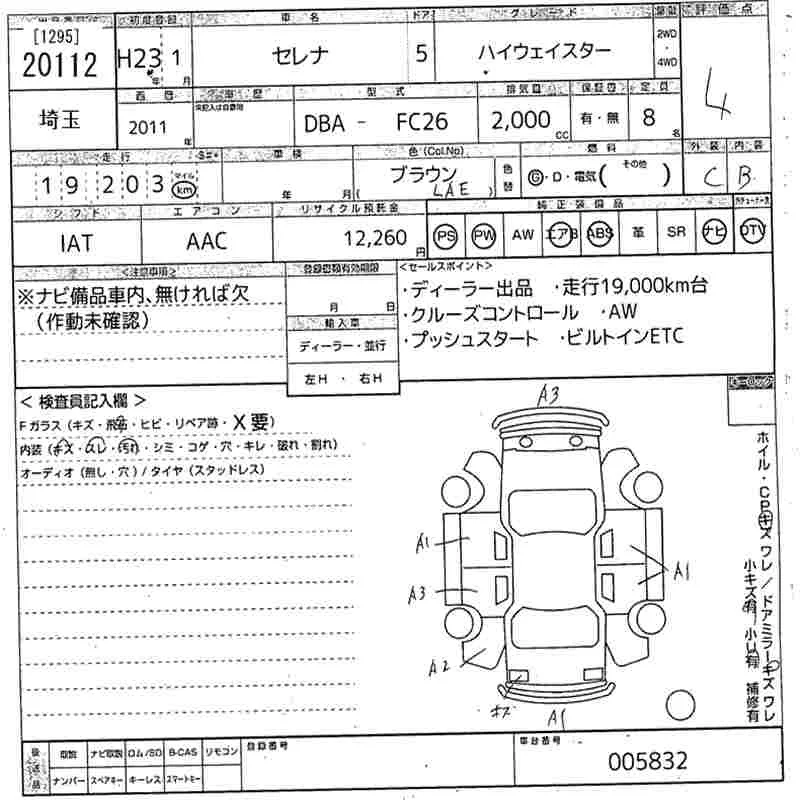 [1295]
20112
初度登録
H23 1
年 月
車名
セレナ
ドア
5
グレード
ハイウェイスター
2WD
・
4WD
評価点
4
埼玉
西暦
2011
年
車歴
型式
DBA - FC26
排気量
2,000
cc
保証書
有・無
定員
8
名
走行
19 203
マイル
km
車検
年 月
色(Col.No)
ブラウン
( LAE )
色替
燃料
G・D・電気( その他 )
外装
C
内装
B
シフト
IAT
エアコン
AAC
リサイクル預託金
12,260
円
純正装備品
PS PW AW エアB ABS 革 SR ナビ DTV
<注意事項>
※ナビ備品車内、無ければ欠
(作動未確認)
登録書類有効期限
月 日
輸入車
ディーラー・並行
左H ・ 右H
<セールスポイント>
・ディーラー出品 ・走行19,000km台
・クルーズコントロール ・AW
・プッシュスタート ・ビルトインETC
< 検査員記入欄 >
Fガラス (キズ・飛石・ヒビ・リペア跡・X要)
内装 (キズ・スレ・汚れ・シミ・コゲ・穴・キレ・破れ・割れ)
オーディオ (無し・穴) / タイヤ (スタッドレス)
A3
A1
A3
A2
A1
キズ
A1
ホイル・CPキズ ワレ / ドアミラーキズ ワレ
小キズ有 小U有 補修有
後送品
取説 ナビ取説 ロム/SD B-CAS リモコン
ナンバー スペアキー キーレス スマートキー
登録番号
車台番号
005832